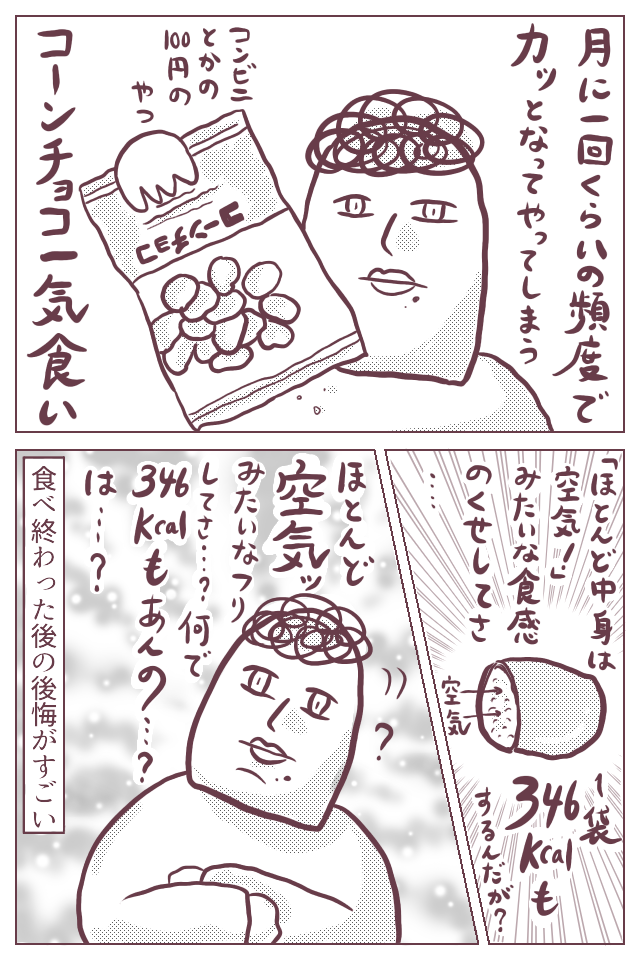 月に一回くらいの頻度で
カッとなってやってしまう
コンビニ
とかの
100円の
やつ
コーンチョコ
コーンチョコ一気食い
「ほとんど中身は
空気!」
みたいな食感
のくせしてさ
……
空気
1袋
346
Kcalも
するんだが?
ほとんど
空気ッ
みたいなフリ
してさ…?何で
346
Kcalもあんの…?
は…?
?
食べ終わった後の後悔がすごい